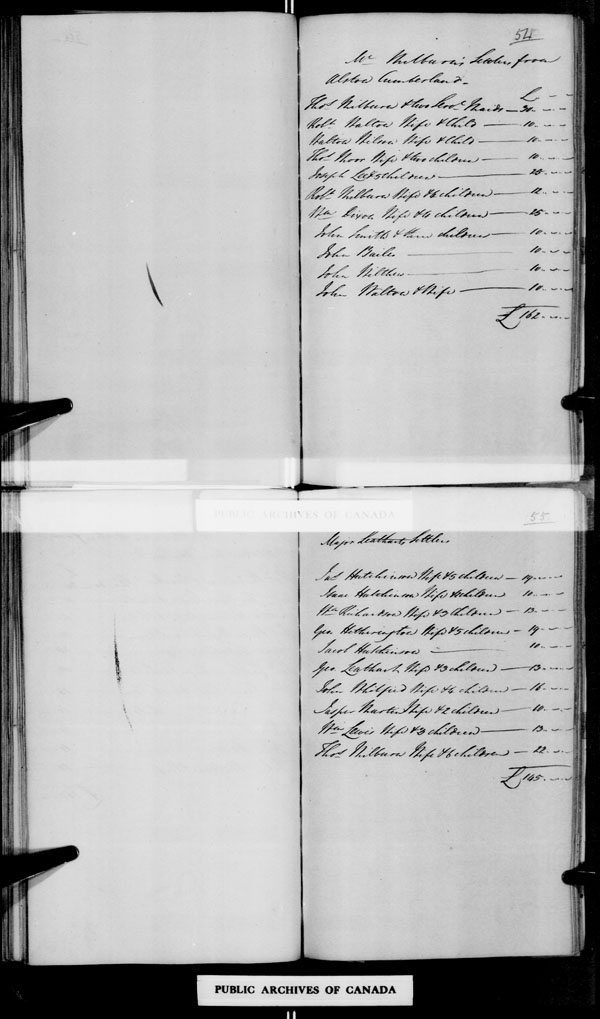 54
Mr Milburn's Settlers from
Alston Cumberland
£
Thos Milburn & two Servt Maids — 30
Robt Walton Wife & Child — 10
Walton Wilson Wife & Child — 10
Thos Moor Wife & two children — 10
Joseph Lee & 5 Children — 25
Robt Milburn Wife & 6 children — 12
Wm Dixon Wife & 6 children — 25
John Smith & three children — 10
John Bailes — 10
John — 10
John Walton & Wife — 10
£ 162
PUBLIC ARCHIVES OF CANADA
55
Major Leathart's Settlers
Jas Hutchinson Wife & 5 children — 19
Isaac Hutchinson Wife & children 10
Wm Richardson Wife & 3 Children — 13
Geo Hetherington Wife & 5 children — 19
Jacob Hutchinson — 10
Geo Leathart Wife & 3 children — 13
John Wife & 4 children — 16
Jasper Martin Wife & 2 children — 10
Wm Lewis Wife & 3 children — 13
Thos Milburn Wife & 6 children — 22
£ 145
PUBLIC ARCHIVES OF CANADA